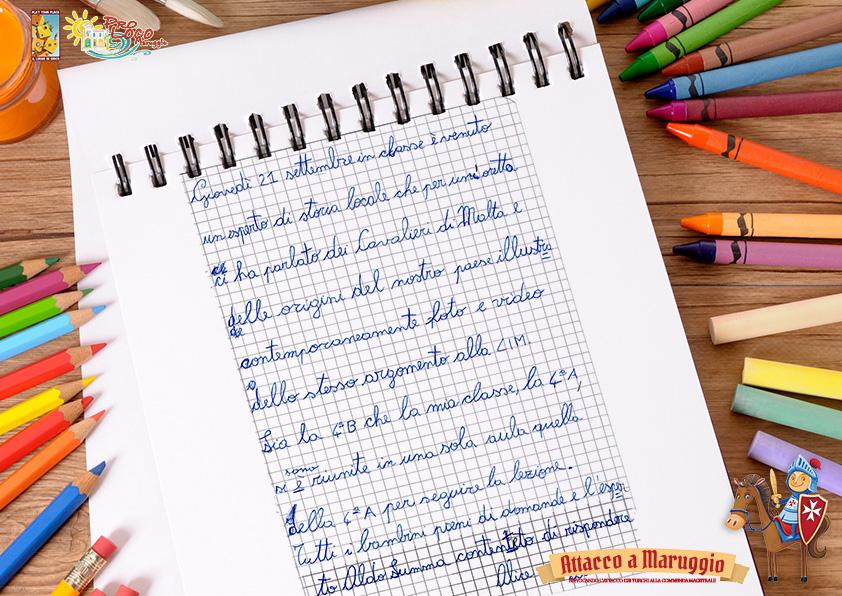 PLAY YOUR PLACE
IL LUOGO IN GIOCO
PRO LOCO
Maruggio
Giovedì 21 settembre in classe è venuto
un esperto di storia locale che per un'oretta
ci ha parlato dei Cavalieri di Malta e
delle origini del nostro paese illustra
contemporaneamente foto e video
dello stesso argomento alla LIM.
Sia la 4ªB che la mia classe, la 4ªA,
si sono riunite in una sola aula quella
della 4ªA per seguire la lezione.
Tutti i bambini pieni di domande e l'esper
to Aldo Summa contento di rispondere
Alice
Attacco a Maruggio
RIEVOCANDO L'ATTACCO DEI TURCHI ALLA COMMENDA MAGISTRALE